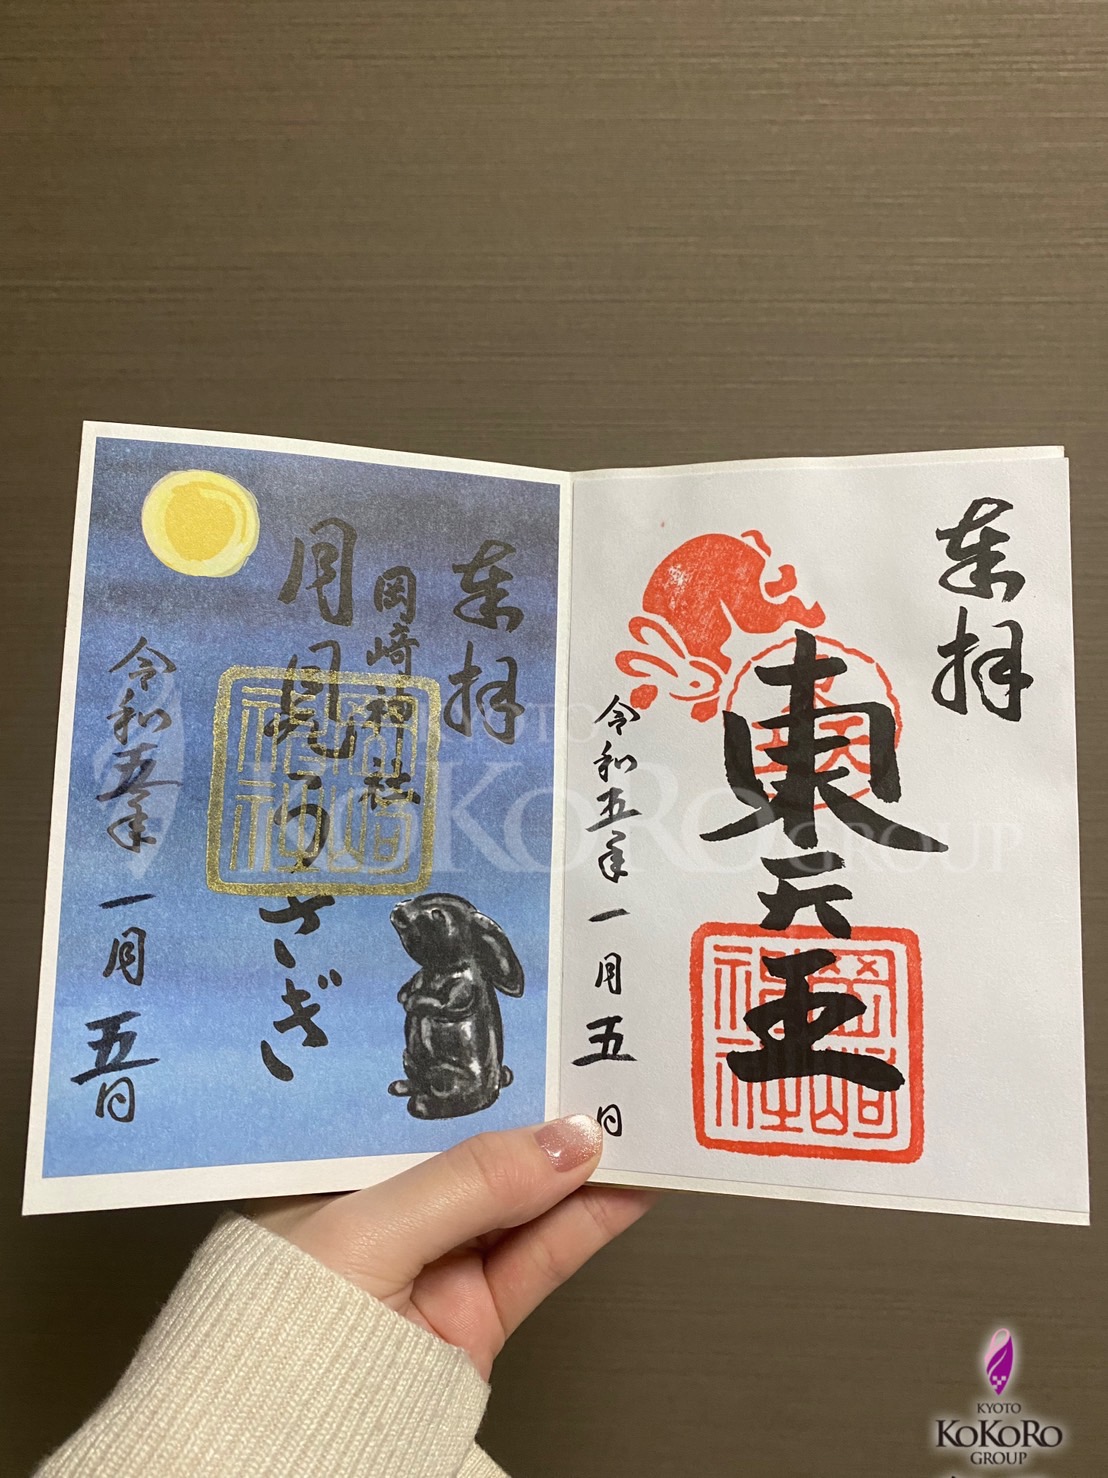 奉拝
東天王
令和五年一月五日
奉拝
岡崎神社
月見うさぎ
令和五年一月五日
岡崎神社
岡崎神社
KYOTO
KOKORO
GROUP
KYOTO
KOKORO
GROUP